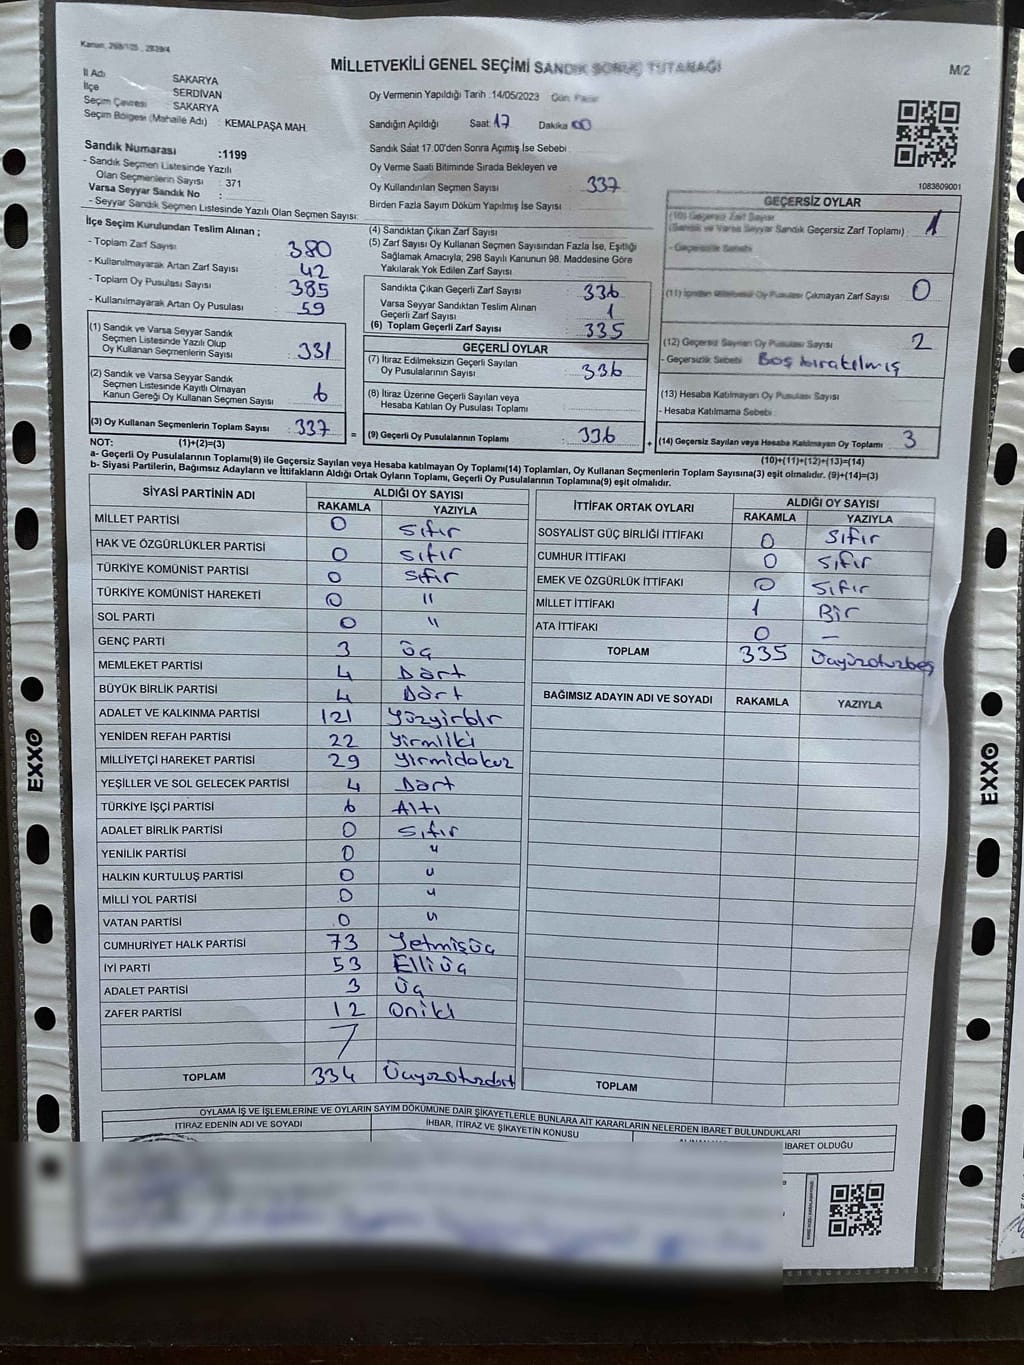 Kanun, 298/105 , 2839/4
MİLLETVEKİLİ GENEL SEÇİMİ SANDIK SONUÇ TUTANAĞI
M/2
İl Adı SAKARYA
İlçe SERDİVAN
Seçim Çevresi SAKARYA
Seçim Bölgesi (Mahalle Adı) : KEMALPAŞA MAH.
Oy Vermenin Yapıldığı Tarih :14/05/2023 Gün: Pazar
Sandığın Açıldığı Saat: 17 Dakika 00
Sandık Saat 17.00'den Sonra Açımış İse Sebebi
Oy Verme Saati Bitiminde Sırada Bekleyen ve
Oy Kullandırılan Seçmen Sayısı : 337
Birden Fazla Sayım Döküm Yapılmış İse Sayısı
1083609001
Sandık Numarası :1199
- Sandık Seçmen Listesinde Yazılı
Olan Seçmenlerin Sayısı : 371
Varsa Seyyar Sandık No :
- Seyyar Sandık Seçmen Listesinde Yazılı Olan Seçmen Sayısı:
İlçe Seçim Kurulundan Teslim Alınan ;
- Toplam Zarf Sayısı 380
- Kullanılmayarak Artan Zarf Sayısı 42
- Toplam Oy Pusulası Sayısı 385
- Kullanılmayarak Artan Oy Pusulası 59
(1) Sandık ve Varsa Seyyar Sandık
Seçmen Listesinde Yazılı Olup
Oy Kullanan Seçmenlerin Sayısı : 331
(2) Sandık ve Varsa Seyyar Sandık
Seçmen Listesinde Kayıtlı Olmayan
Kanun Gereği Oy Kullanan Seçmen Sayısı : 6
(3) Oy Kullanan Seçmenlerin Toplam Sayısı : 337
(4) Sandıktan Çıkan Zarf Sayısı
(5) Zarf Sayısı Oy Kullanan Seçmen Sayısından Fazla İse, Eşitliği
Sağlamak Amacıyla, 298 Sayılı Kanunun 98. Maddesine Göre
Yakılarak Yok Edilen Zarf Sayısı
Sandıkta Çıkan Geçerli Zarf Sayısı : 336
Varsa Seyyar Sandıktan Teslim Alınan
Geçerli Zarf Sayısı : 1
(6) Toplam Geçerli Zarf Sayısı : 335
GEÇERLİ OYLAR
(7) İtiraz Edilmeksizin Geçerli Sayılan
Oy Pusulalarının Sayısı : 336
(8) İtiraz Üzerine Geçerli Sayılan veya
Hesaba Katılan Oy Pusulası Toplamı
= (9) Geçerli Oy Pusulalarının Toplamı : 336
GEÇERSİZ OYLAR
(10) Geçersiz Zarf Sayısı
(Sandık ve Varsa Seyyar Sandık Geçersiz Zarf Toplamı) : 1
- Geçersizlik Sebebi
(11) İçinden Milletvekili Oy Pusulası Çıkmayan Zarf Sayısı : 0
(12) Geçersiz Sayılan Oy Pusulası Sayısı : 2
- Geçersizlik Sebebi Boş bırakılmış
(13) Hesaba Katılmayan Oy Pusulası Sayısı
- Hesaba Katılmama Sebebi
+ (14) Geçersiz Sayılan veya Hesaba Katılmayan Oy Toplamı : 3
NOT: (1)+(2)=(3) (10)+(11)+(12)+(13)=(14)
a- Geçerli Oy Pusulalarının Toplamı(9) ile Geçersiz Sayılan veya Hesaba katılmayan Oy Toplamı(14) Toplamları, Oy Kullanan Seçmenlerin Toplam Sayısına(3) eşit olmalıdır. (9)+(14)=(3)
b- Siyasi Partilerin, Bağımsız Adayların ve İttifakların Aldığı Ortak Oyların Toplamı, Geçerli Oy Pusulalarının Toplamına(9) eşit olmalıdır.
SİYASİ PARTİNİN ADI ALDIĞI OY SAYISI
RAKAMLA YAZIYLA
MİLLET PARTİSİ 0 sıfır
HAK VE ÖZGÜRLÜKLER PARTİSİ 0 sıfır
TÜRKİYE KOMÜNİST PARTİSİ 0 sıfır
TÜRKİYE KOMÜNİST HAREKETİ 0 "
SOL PARTİ 0 "
GENÇ PARTİ 3 üç
MEMLEKET PARTİSİ 4 Dört
BÜYÜK BİRLİK PARTİSİ 4 Dört
ADALET VE KALKINMA PARTİSİ 121 Yüzyirbir
YENİDEN REFAH PARTİSİ 22 Yirmiiki
MİLLİYETÇİ HAREKET PARTİSİ 29 Yirmidokuz
YEŞİLLER VE SOL GELECEK PARTİSİ 4 Dört
TÜRKİYE İŞÇİ PARTİSİ 6 Altı
ADALET BİRLİK PARTİSİ 0 sıfır
YENİLİK PARTİSİ 0 "
HALKIN KURTULUŞ PARTİSİ 0 "
MİLLİ YOL PARTİSİ 0 "
VATAN PARTİSİ 0 "
CUMHURİYET HALK PARTİSİ 73 Yetmişüç
İYİ PARTİ 53 Elliüç
ADALET PARTİSİ 3 üç
ZAFER PARTİSİ 12 Oniki
TOPLAM 334 Üçyüzotuzdört
İTTİFAK ORTAK OYLARI ALDIĞI OY SAYISI
RAKAMLA YAZIYLA
SOSYALİST GÜÇ BİRLİĞİ İTTİFAKI 0 sıfır
CUMHUR İTTİFAKI 0 sıfır
EMEK VE ÖZGÜRLÜK İTTİFAKI 0 sıfır
MİLLET İTTİFAKI 1 Bir
ATA İTTİFAKI 0 —
TOPLAM 335 Üçyüzotuzbeş
BAĞIMSIZ ADAYIN ADI VE SOYADI RAKAMLA YAZIYLA
TOPLAM
OYLAMA İŞ VE İŞLEMLERİNE VE OYLARIN SAYIM DÖKÜMÜNE DAİR ŞİKAYETLERLE BUNLARA AİT KARARLARIN NELERDEN İBARET BULUNDUKLARI
İTİRAZ EDENİN ADI VE SOYADI İHBAR, İTİRAZ VE ŞİKAYETİN KONUSU İBARET OLDUĞU
EXXO
EXXO